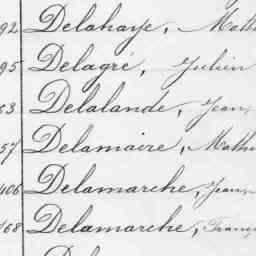 92 Delahaye, Math
95 Delagré, Julien
53 Delalande, Jean
57 Delamaire, Math
406 Delamarche, Jean
168 Delamarche, Franç